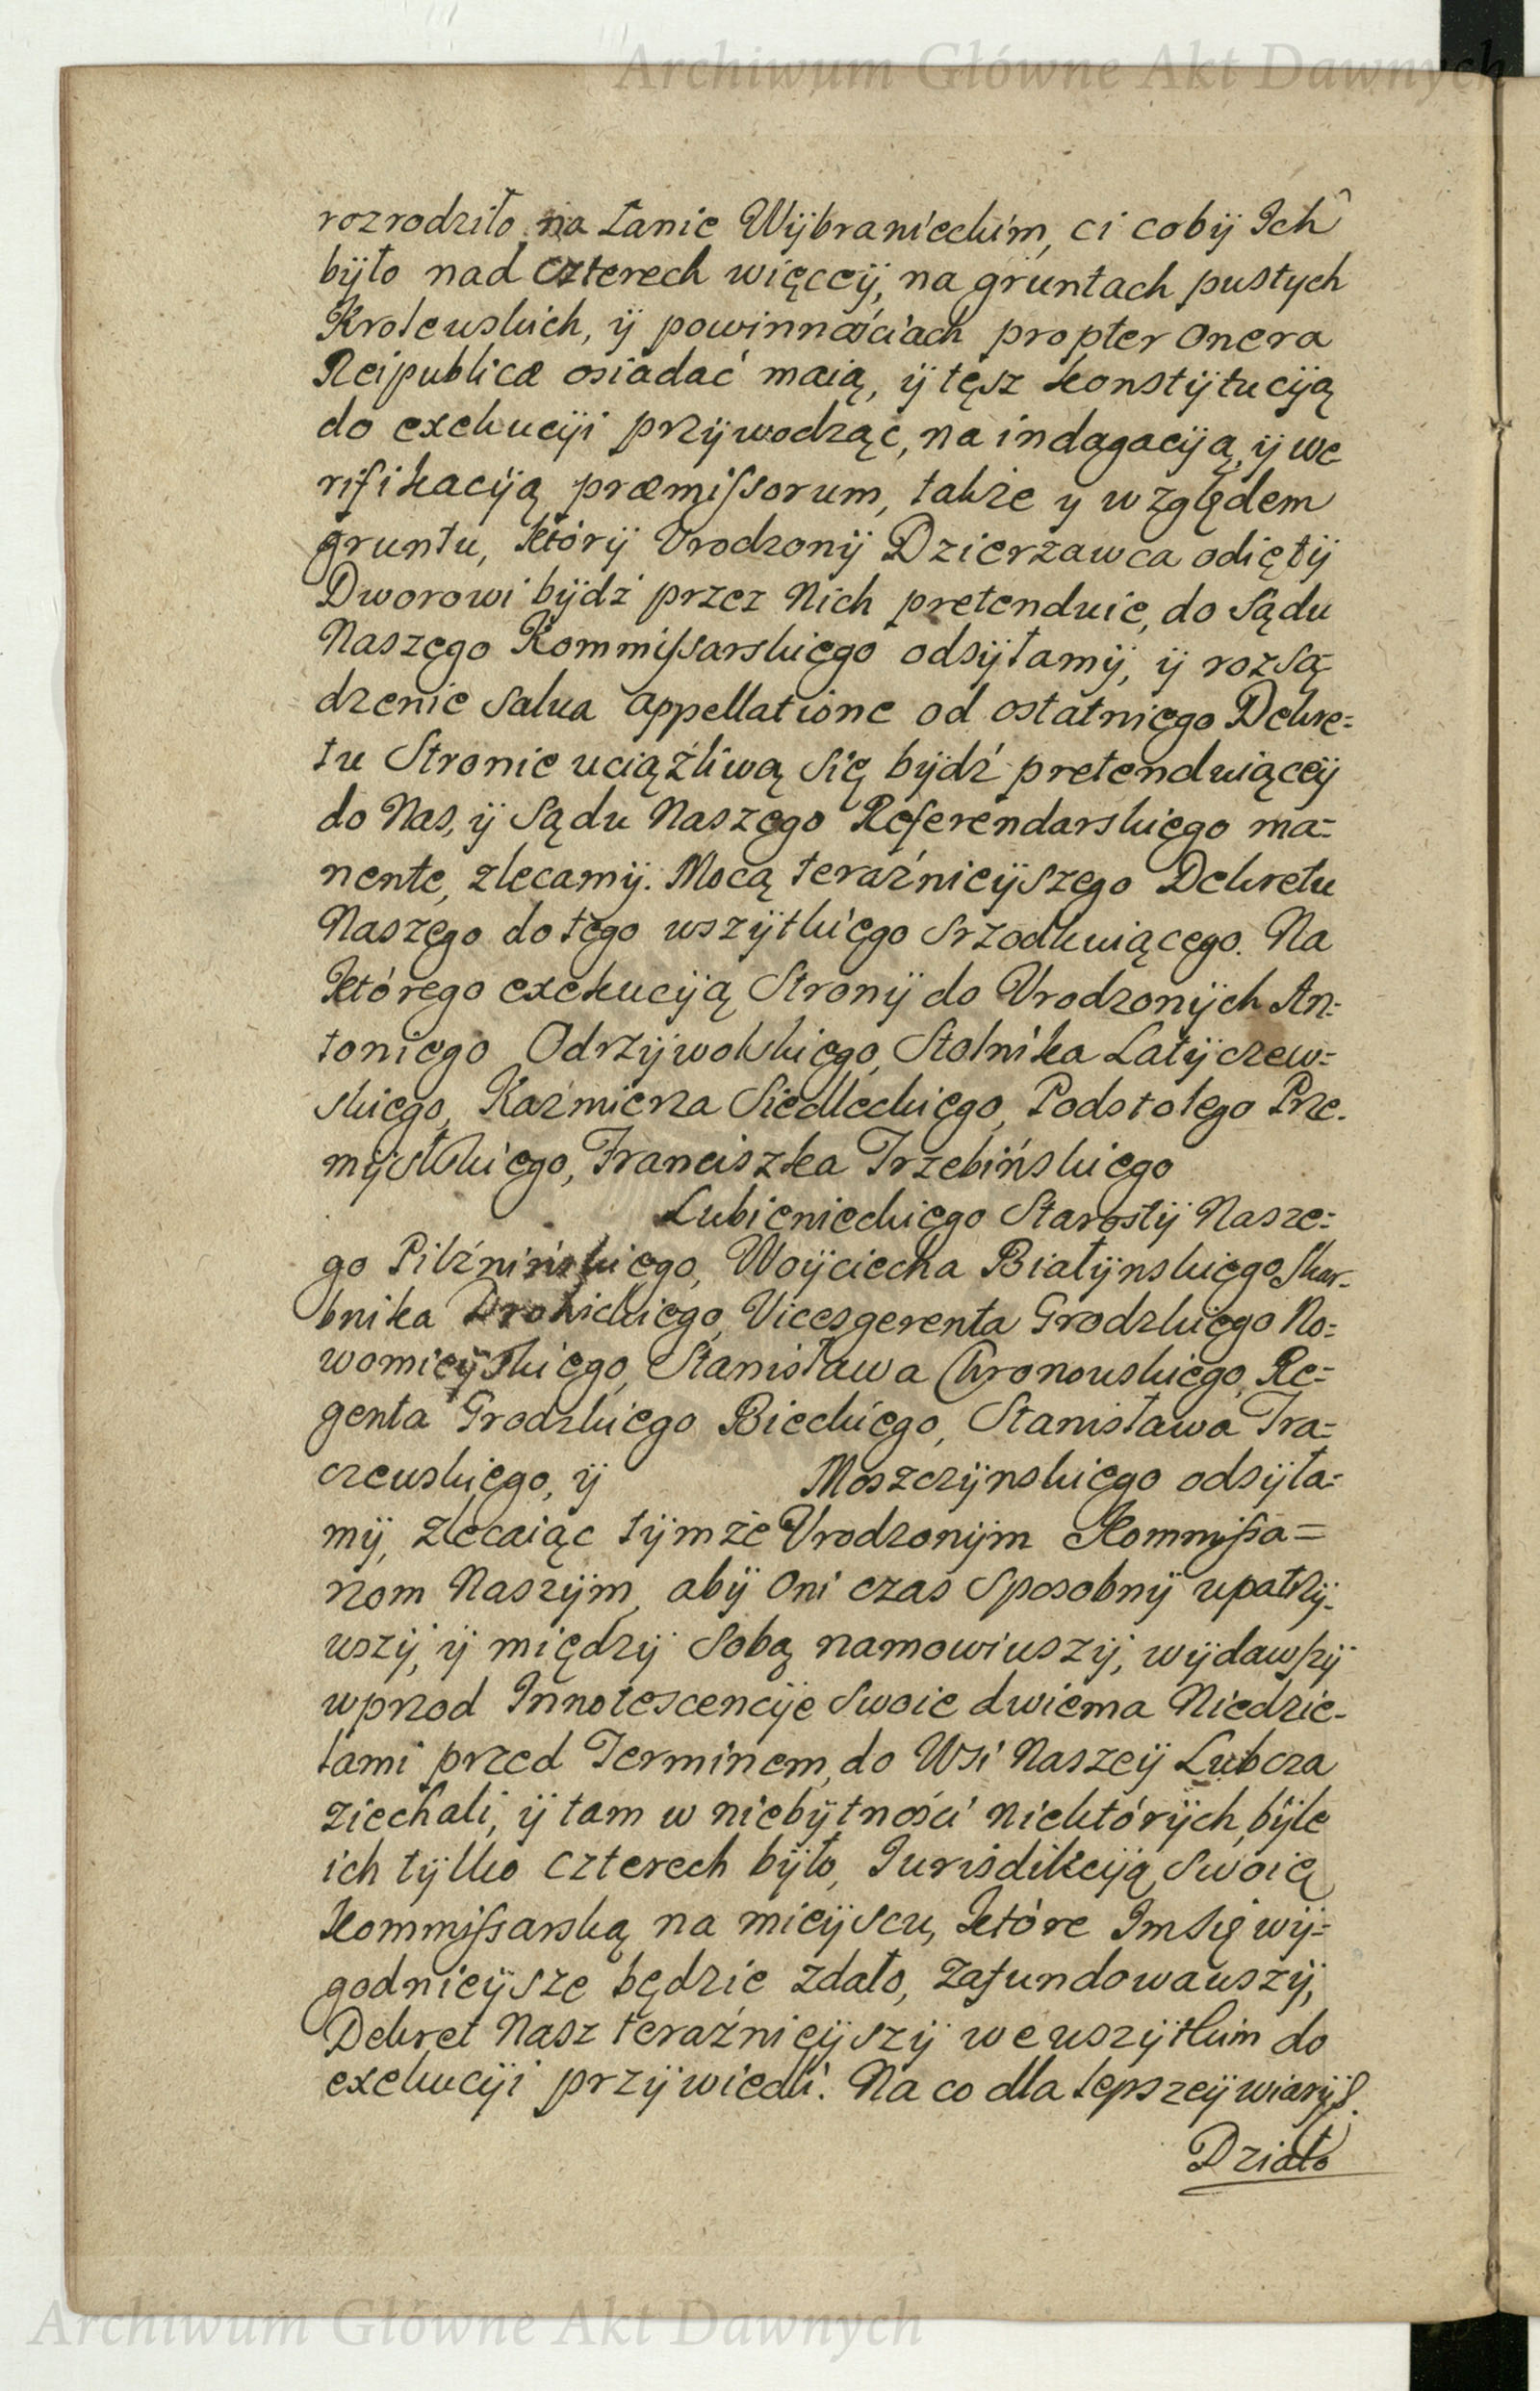 Archiwum Główne Akt Dawnych
rozrodziło na Łanie Wÿbranieckim, ci cobÿ Ich
bÿło nad czterech więceÿ, na gruntach pustych
Krolewskich, ÿ powinnościach propter onera
Reipublicæ osiadać maią, ÿ tęsz konstÿtucÿą
do exekucÿi przÿwodząc, na indagacÿą, ÿ we
rifikacÿą præmissorum, także y względem
gruntu, którÿ Vrodzonÿ Dzierzawca odiętÿ
Dworowi bÿdź przez Nich pretenduie, do Sądu
Naszego Kommissarskiego odsÿłamÿ, ÿ rozsą=
dzenie salva appellatione od ostatniego Dekre=
tu Stronie uciążliwą się bÿdź pretenduiąceÿ
do Nas, ÿ Sądu Naszego Referendarskiego ma=
nente, zlecamÿ. Mocą teraźnieÿszego Dekretu
Naszego do tego wszÿtkiego srzodkuiącego. Na
którego exekucÿą Stronÿ do Vrodzonÿch An=
toniego Odrzÿwolskiego, Stolnika Latÿczew=
skiego, Kaźmierza Siedleckiego, Podstolego Prze.
mÿslskiego, Franciszka Trzebińskiego
Lubienieckiego Starostÿ Nasze=
go Pilźnińskiego, Woÿciecha Białÿnskiego Skar.
bnika Drohickiego, Vicesgerenta Grodzkiego No=
womieÿskiego, Stanisława Chronowskiego, Re=
genta Grodzkiego Bieckiego, Stanisława Tra=
czewskiego, ÿ Moszczÿnskiego odsÿła=
mÿ, zlecaiąc tÿmże Vrodzonÿm Kommissa=
rzom Naszÿm, abÿ oni czas sposobnÿ upatrzÿ=
wszÿ, ÿ międzÿ sobą namowiwszÿ, wÿdawszÿ
wprzod Innotescencÿe swoie dwiema Niedzie=
lami przed Terminem, do Wsi Naszeÿ Lubcza
ziechali, ÿ tam w niebÿtności niektórÿch, bÿle
ich tÿlko czterech bÿło, Jurisdikcÿą swoię
kommissarską na mieÿscu, które Im się wÿ=
godnieÿsze będzie zdało, zafundowawszÿ,
Dekret Nasz teraźnieÿszÿ we wszÿtkim do
exekucÿi przÿwiedli. Na co dla lepszeÿ wiarÿ &.
Działo
Archiwum Główne Akt Dawnych